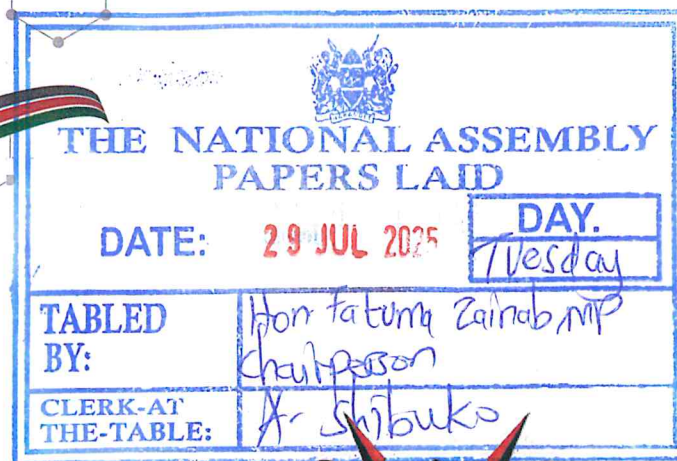 THE NATIONAL ASSEMBLY
PAPERS LAID
DATE: 29 JUL 2025
DAY.
Tuesday
TABLED BY: Hon Fatuma Zainab, MP
Chairperson
CLERK-AT THE-TABLE: A. Shibuko